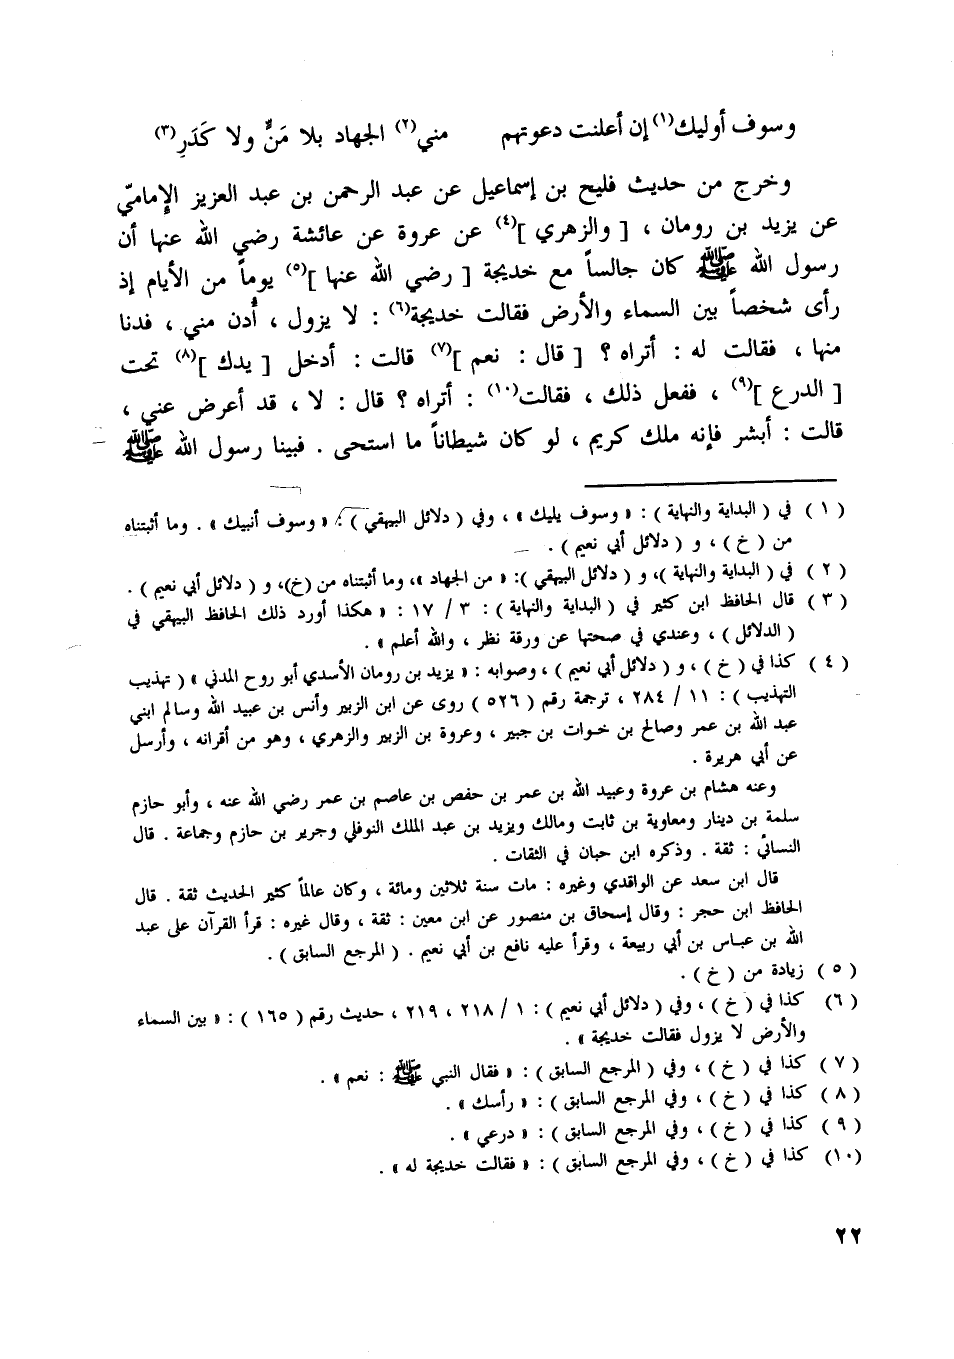 وسوف أوليك(١) إن أعلنت دعوتهم مني(٢) الجهاد بلا مَنٍّ ولا كَدَرِ(٣)
وخرج من حديث فليح بن إسماعيل عن عبد الرحمن بن عبد العزيز الإماميّ
عن يزيد بن رومان ، [ والزهري ](٤) عن عروة عن عائشة رضي الله عنها أن
رسول الله ﷺ كان جالساً مع خديجة [ رضي الله عنها ](٥) يوماً من الأيام إذ
رأى شخصاً بين السماء والأرض فقالت خديجة(٦) : لا يزول ، أُدن مني ، فدنا
منها ، فقالت له : أتراه ؟ [ قال : نعم ](٧) قالت : أدخل [ يدك ](٨) تحت
[ الدرع ](٩) ، ففعل ذلك ، فقالت(١٠) : أتراه ؟ قال : لا ، قد أعرض عني ،
قالت : أبشر فإنه ملك كريم ، لو كان شيطاناً ما استحى . فبينا رسول الله ﷺ
( ١ ) في ( البداية والنهاية ) : « وسوف يليك » ، وفي ( دلائل البيهقي ) : « وسوف أنبيك » . وما أثبتناه
من ( خ ) ، و ( دلائل أبي نعيم ) .
( ٢ ) في ( البداية والنهاية )، و ( دلائل البيهقي ): « من الجهاد »، وما أثبتناه من (خ)، و ( دلائل أبي نعيم ) .
( ٣ ) قال الحافظ ابن كثير في ( البداية والنهاية ) : ٣ / ١٧ : « هكذا أورد ذلك الحافظ البيهقي في
( الدلائل ) ، وعندي في صحتها عن ورقة نظر ، والله أعلم » .
( ٤ ) كذا في ( خ ) ، و ( دلائل أبي نعيم ) ، وصوابه : « يزيد بن رومان الأسدي أبو روح المدني » ( تهذيب
التهذيب ) : ١١ / ٢٨٤ ، ترجمة رقم ( ٥٢٦ ) روى عن ابن الزبير وأنس بن عبيد الله وسالم ابني
عبد الله بن عمر وصالح بن خوات بن جبير ، وعروة بن الزبير والزهري ، وهو من أقرانه ، وأرسل
عن أبي هريرة .
وعنه هشام بن عروة وعبيد الله بن عمر بن حفص بن عاصم بن عمر رضي الله عنه ، وأبو حازم
سلمة بن دينار ومعاوية بن ثابت ومالك ويزيد بن عبد الملك النوفلي وجرير بن حازم وجماعة . قال
النسائي : ثقة . وذكره ابن حبان في الثقات .
قال ابن سعد عن الواقدي وغيره : مات سنة ثلاثين ومائة ، وكان عالماً كثير الحديث ثقة . قال
الحافظ ابن حجر : وقال إسحاق بن منصور عن ابن معين : ثقة ، وقال غيره : قرأ القرآن على عبد
الله بن عباس بن أبي ربيعة ، وقرأ عليه نافع بن أبي نعيم . ( المرجع السابق ) .
( ٥ ) زيادة من ( خ ) .
(٦) كذا في ( خ ) ، وفي ( دلائل أبي نعيم ) : ١ / ٢١٨ ، ٢١٩ ، حديث رقم ( ١٦٥ ) : « بين السماء
والأرض لا يزول فقالت خديجة » .
( ٧ ) كذا في ( خ ) ، وفي ( المرجع السابق ) : « فقال النبي ﷺ : نعم » .
( ٨ ) كذا في ( خ ) ، وفي المرجع السابق ) : « رأسك » .
( ٩ ) كذا في ( خ ) ، وفي المرجع السابق ) : « درعي » .
(١٠) كذا في ( خ ) ، وفي المرجع السابق ) : « فقالت خديجة له » .
٢٢